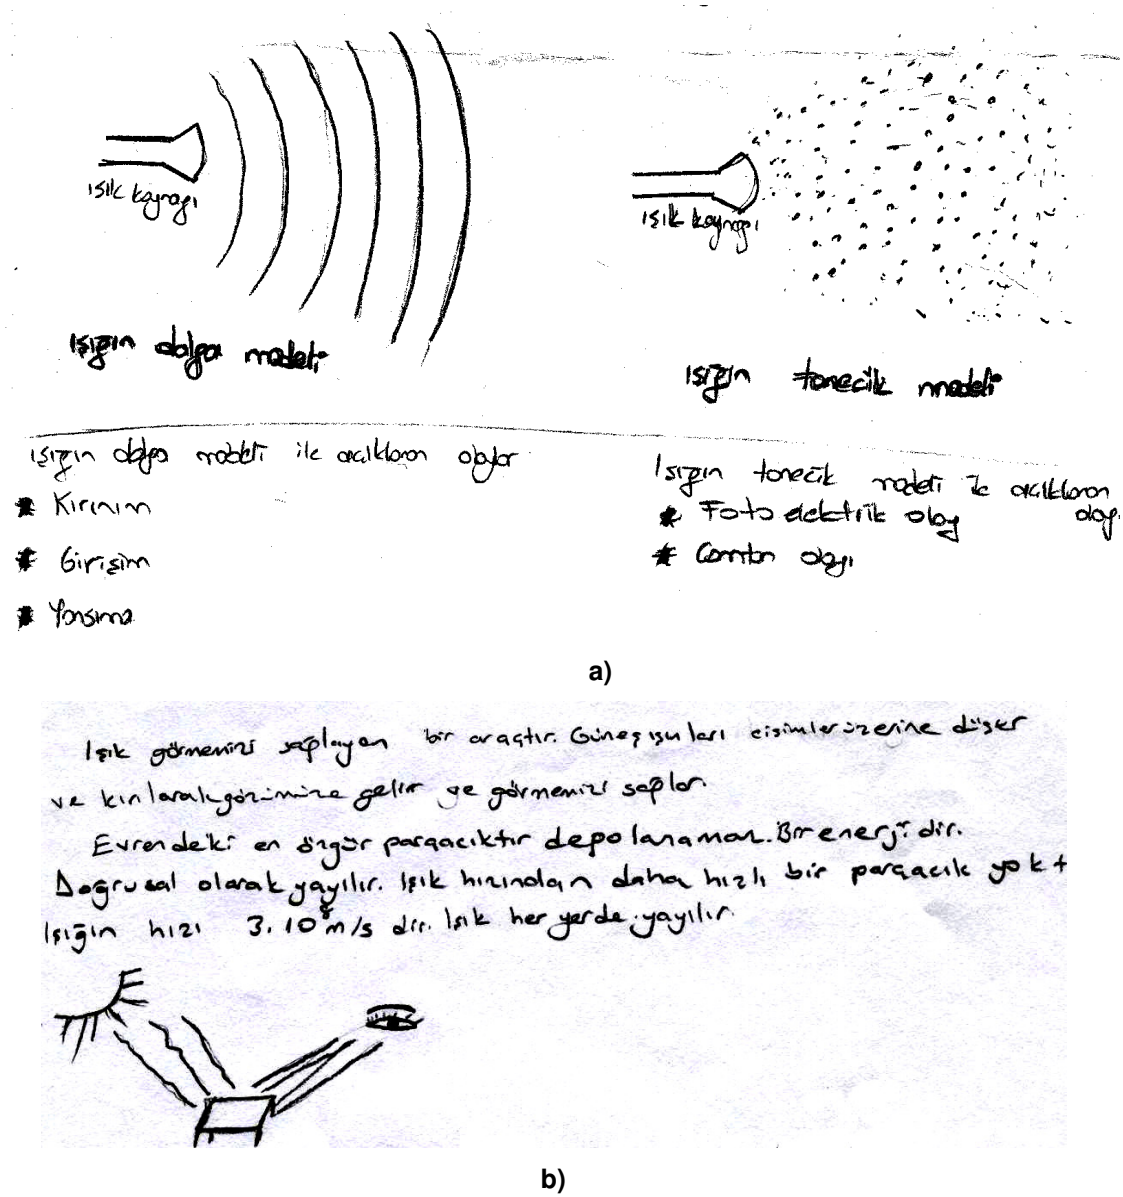 ışık kaynağı
ışık kaynağı
ışığın dalga modeli
ışığın tanecik modeli
ışığın dalga modeli ile açıklanan olaylar
* Kırınım
* Girişim
* Yansıma
Işığın tanecik modeli ile açıklanan
olay
* Foto elektrik olay
* Compton olayı
a)
Işık görmemizi sağlayan bir araçtır. Güneş ışınları cisimler üzerine düşer
ve kırılarak gözümüze gelir ve görmemizi sağlar.
Evrendeki en özgür parçacıktır depolanamaz. Bir enerjidir.
Doğrusal olarak yayılır. Işık hızından daha hızlı bir parçacık yokt
Işığın hızı 3.10⁸ m/s dir. Işık her yerde yayılır.
b)